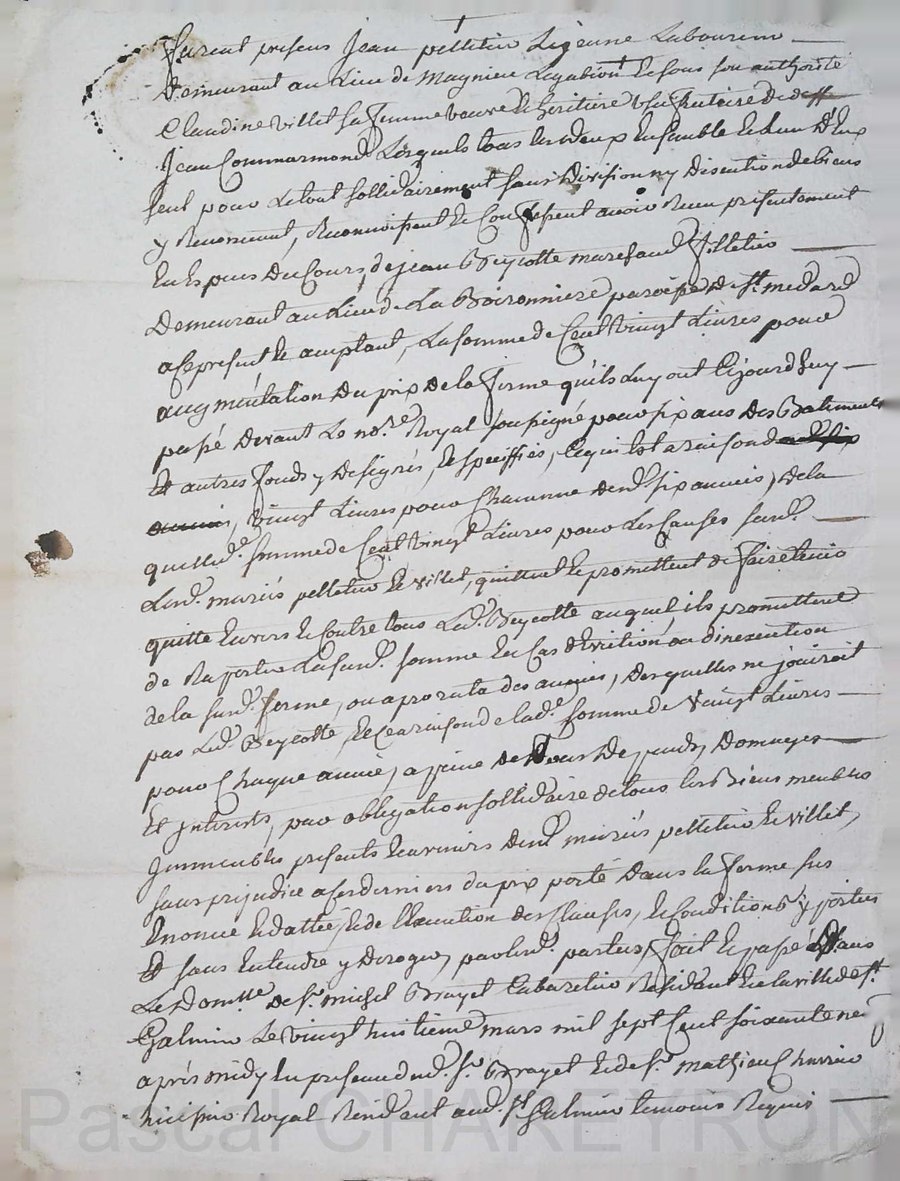 furent presens Jean pelletier Lejeune Laboureur
Demeurant au Lieu de Magnieu et sous son authorité
Claudine villet sa femme veuve et heritiere usufruitoire de deff
Jean Commarmond Lesquels tous les deux Ensemble et Lun d'Eux
seul pour Le tout sollidairement sans Division ny Discution de biens
y Renoncent, Reconnoissent et Confessent avoir Receu presentement
En Espaces du Cours, de jean Beycotte marechand filletier
Demeurant au Lieu de La Boironniere paroisse de St. medard
a ce present et acceptant, La somme de Cent Vingt Livres pour
augmentation Du prix de la ferme qu'ils luy ont cejourd'huy
passé Devant Le nore. Royal soussigné pour six ans Des Batiments
Et autres fonds y Designés, et speciffiés, Ce qui Est a raison de
Vingt Livres pour Chacune dend. six années, de la
quelle de. somme de Cent Vingt Livres pour Les Causes susd.
Lesd. mariés pelletier et villet, quittent et promettent de faire tenir
quitte Envers et Contre tous Led. Beycotte auquel ils promettent
de Raporter La susd. somme En Cas d'Eviction ou d'inexecution
de la susd. ferme, ou a prorata des années, Desquelles ne jouiroit
pas Led. Beycotte, et Ce a raison de lade. somme de Vingt Livres
pour Chaque année, a peine de tous Depends, Domages
Et Interests, par obligation sollidaire de tous Les Biens meubles
Immeubles presents et avenirs desd. mariés pelletier et villet,
sans prejudice a ces derniers du prix porté Dans la ferme sus
Enoncé et dattée, et de l'Execution des Clauses, et Conditions y portées
Et sans Entendre y Deroger, par lesd. parties, fait et passé Dans
Le Domlle. de sr. michel Brayet Cabaretier Residant En la ville de st.
Galmier Le vingt huitieme mars mil sept Cent soixante neuf
après midy En presence dud. sr. Brayet et de sr. mathieu
huissier Royal Residant aud. st. Galmier temoins Requis
Pascal CHAREYRON